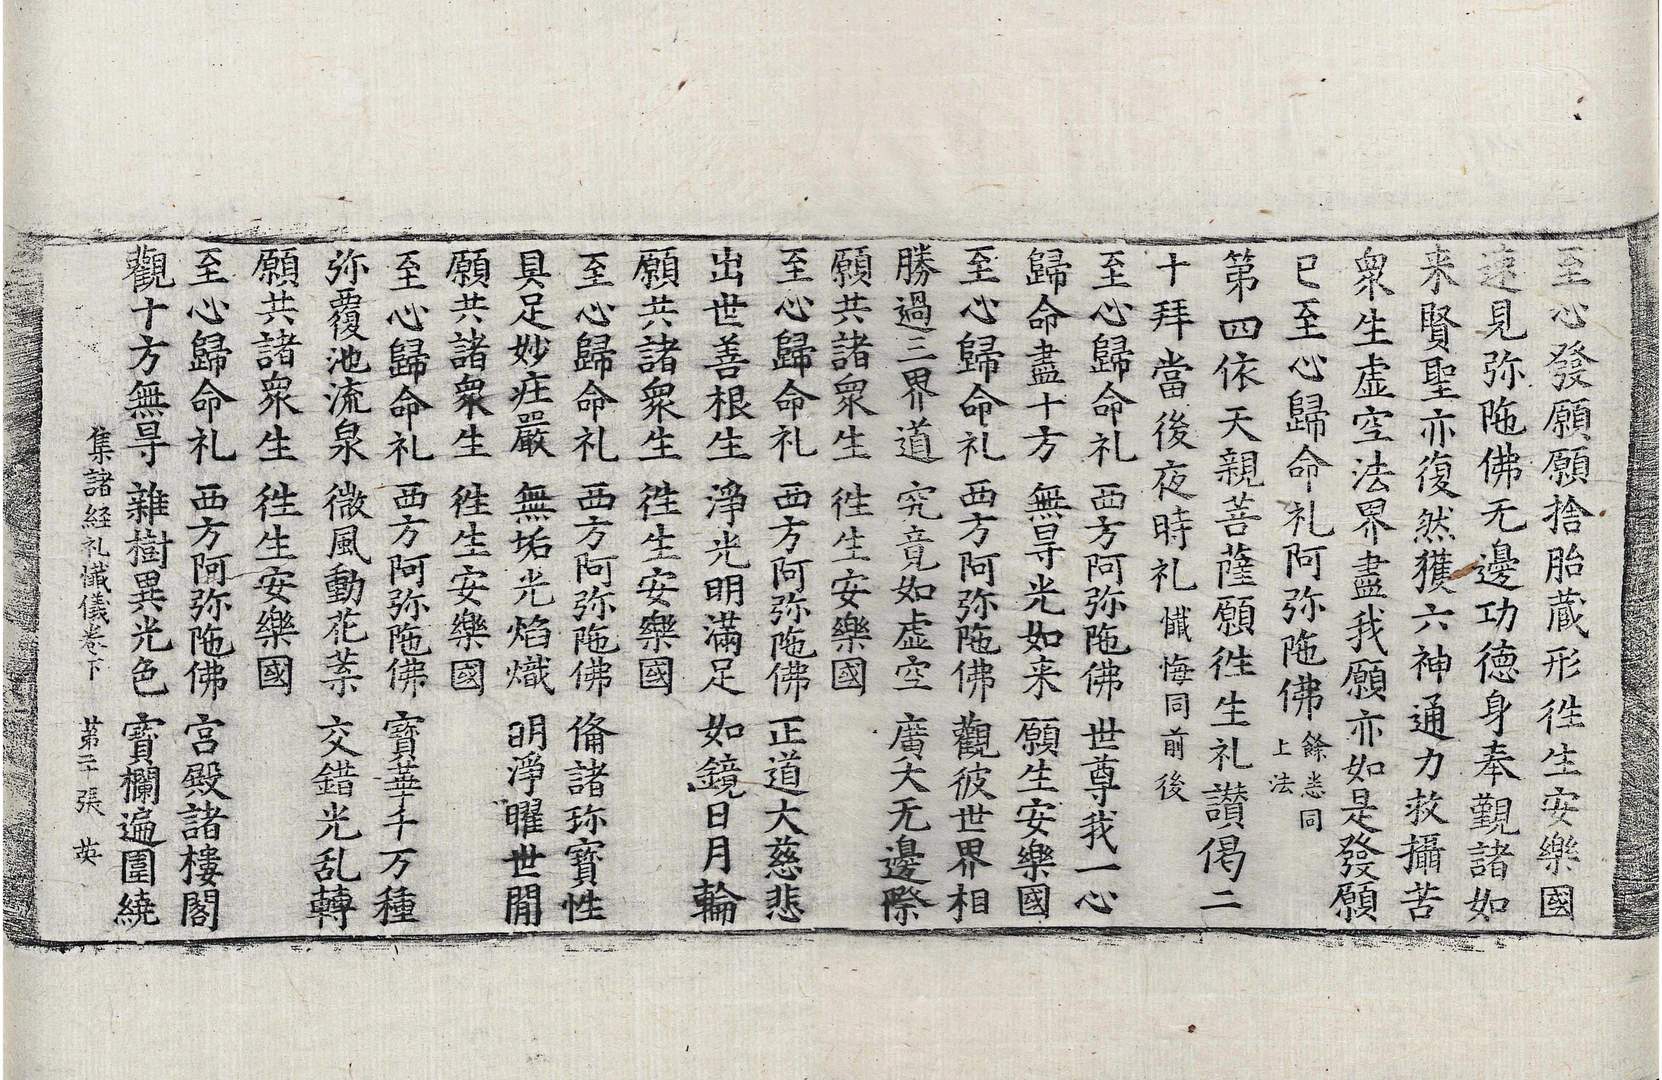 至心發願願捨胎藏形徃生安樂國
速見弥陁佛无邊功德身奉覲諸如
来賢聖亦復然獲六神通力救攝苦
衆生虛空法界盡我願亦如是發願
已至心歸命礼阿弥陁佛餘悉同上法
第四依天親菩薩願徃生礼讃偈二
十拜當後夜時礼懺悔同前後
至心歸命礼 西方阿弥陁佛 世尊我一心
歸命盡十方 無㝵光如来 願生安樂國
至心歸命礼 西方阿弥陁佛 觀彼世界相
勝過三界道 究竟如虛空 廣大无邊際
願共諸衆生 徃生安樂國
至心歸命礼 西方阿弥陁佛 正道大慈悲
出世善根生 淨光明滿足 如鏡日月輪
願共諸衆生 徃生安樂國
至心歸命礼 西方阿弥陁佛 俻諸珎寳性
具足妙庄嚴 無垢光焰熾 明淨曜世間
願共諸衆生 徃生安樂國
至心歸命礼 西方阿弥陁佛 寳華千万種
弥覆池流泉 微風動花葉 交錯光乱轉
願共諸衆生 徃生安樂國
至心歸命礼 西方阿弥陁佛 宫殿諸樓閣
觀十方無㝵 雜樹異光色 寳欄遍圍繞
集諸経礼懺儀卷下 第二十張 英